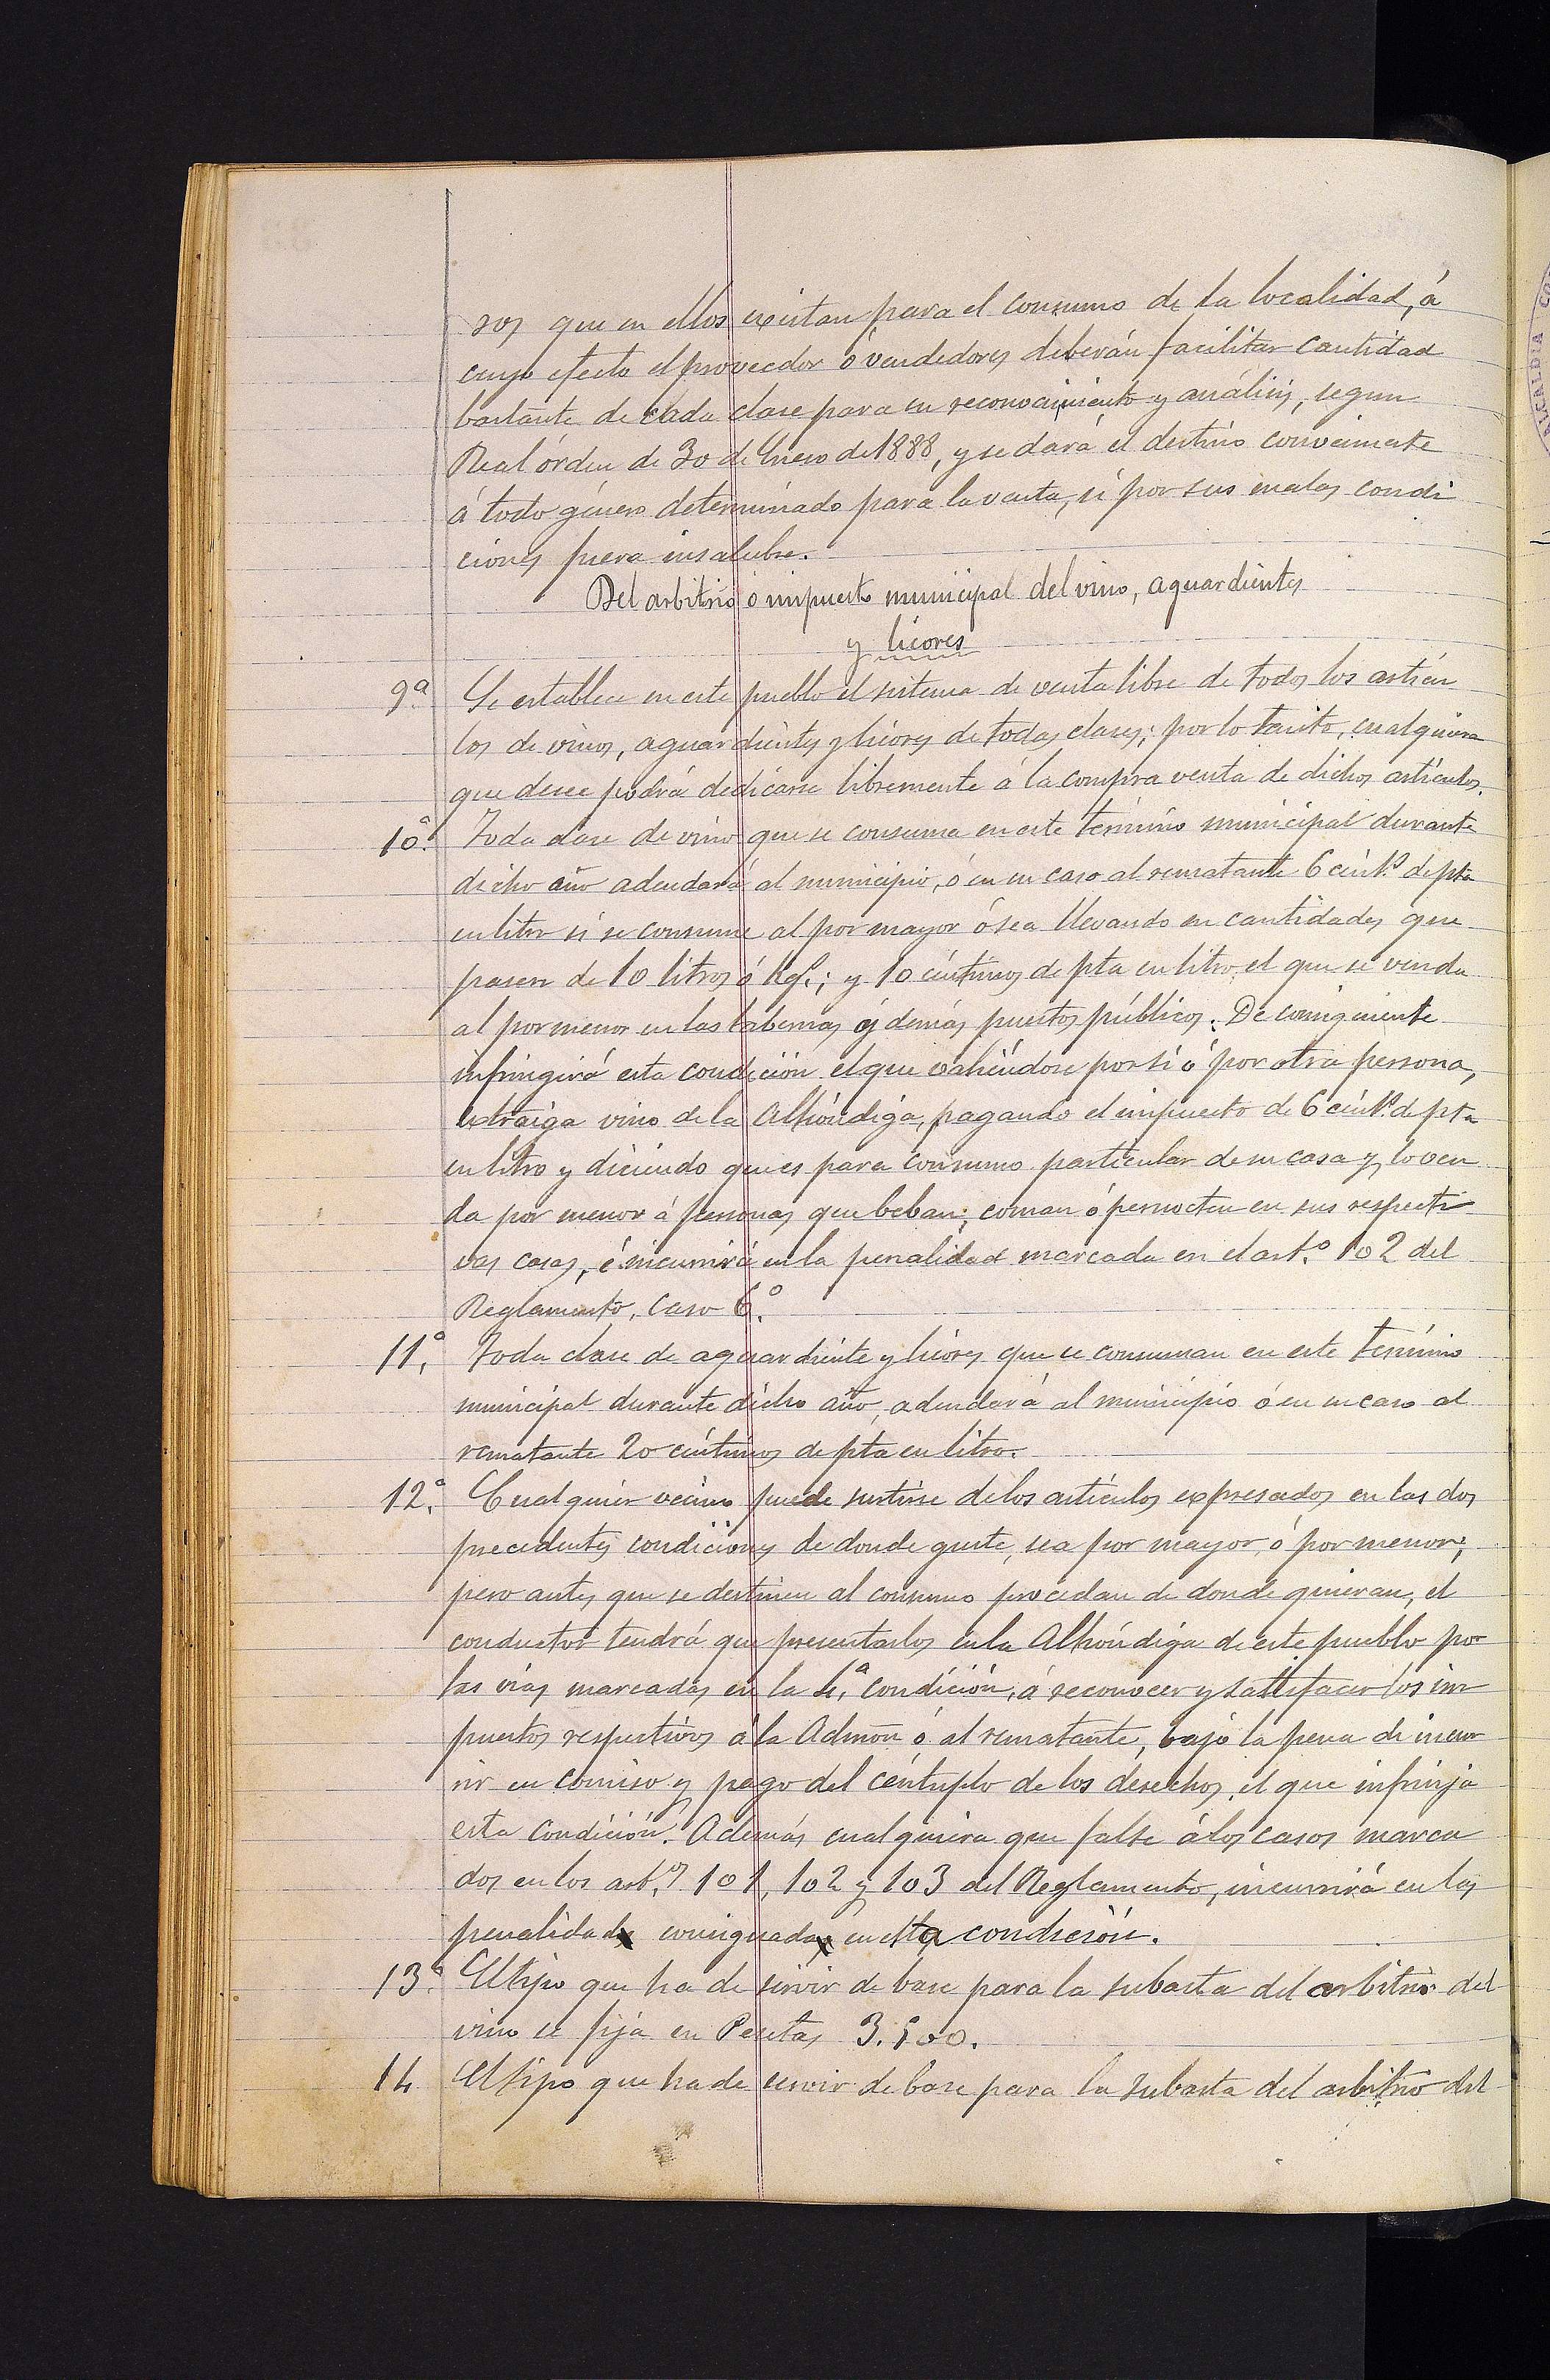 ros que en ellos existan para el consumo de la localidad, á
cuyo efecto el proveedor ó vendedores deberán facilitar cantidad
bastante de cada clase para su reconocimiento y análisis, segun
Real órden de 30 de Enero de 1888, y se dará el destino conveniente
á todo género determinado para la venta, si por sus malas condi
ciones fuera insalubre.
Del arbitrio ó impuesto municipal del vino, aguardientes
y licores
9ª Se establece en este pueblo el sistema de venta libre de todos los artícu
los de vinos, aguardientes y licores de todas clases; por lo tanto, cualquiera
que desee podrá dedicarse libremente á la compra venta de dichos artículos.
10ª Toda clase de vino que se consuma en este término municipal durante
dicho año adeudará al municipio, ó en su caso al rematante 6 cént.s de pta
en litro si se consume al por mayor ó sea llevando en cantidades que
pasen de 10 litros ó Kgs.; y 10 céntimos de pta en litro el que se venda
al por menor en las tabernas y demás puestos públicos. De consiguiente
infringirá esta condición el que valiéndose por sí ó por otra persona,
extraiga vino de la Alhóndiga, pagando el impuesto de 6 cént.s de pta
en litro y diciendo que es para consumo particular de su casa y lo ven
da por menor á personas que beban, coman ó pernocten en sus respecti
vas casas, é incurrirá en la penalidad marcada en el art.º 102 del
Reglamento, caso 6.º
11.ª Toda clase de aguardiente y licores que se consuman en este término
municipal durante dicho año, adeudará al municipio ó en su caso al
rematante 20 céntimos de pta en litro.
12.ª Cualquier vecino puede surtirse de los artículos expresados en las dos
precedentes condiciones de donde guste, sea por mayor, ó por menor;
pero antes que se destinen al consumo procedan de donde quieran, el
conductor tendrá que presentarlos en la Alhóndiga de este pueblo por
las vías marcadas en la 4.ª condición, á reconocer y satisfacer los im
puestos respectivos á la Admon ó al rematante, bajo la pena de incur
rir en comiso y pago del céntuplo de los derechos, el que infrinja
esta condición. Además cualquiera que falte á los casos marca
dos en los art.os 101, 102 y 103 del Reglamento, incurrirá en las
penalidades consignadas en esta condición.
13.ª El tipo que ha de servir de base para la subasta del arbitrio del
vino se fija en Pesetas 3.500.
14 El tipo que ha de servir de base para la subasta del arbitrio del
ALCALDIA